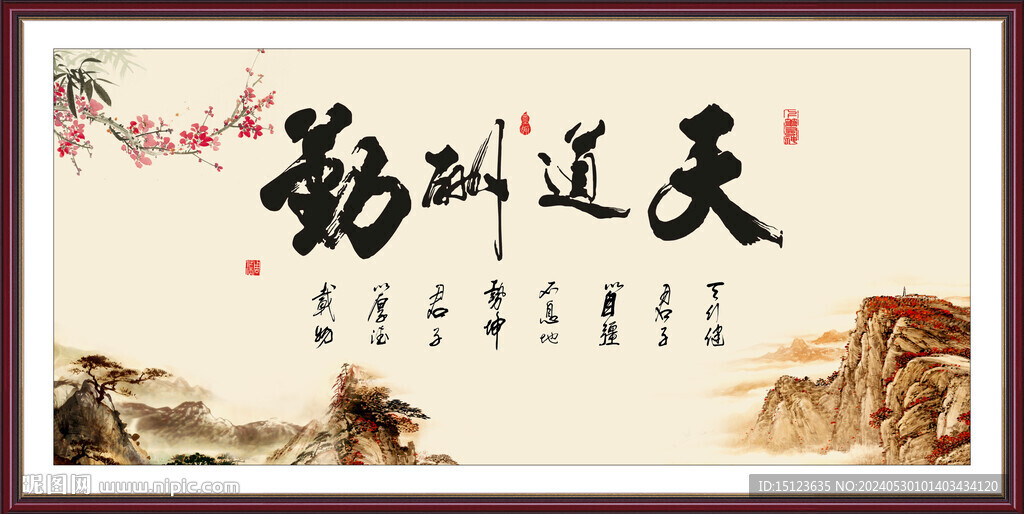 天道酬勤
天行健
君子
以自强
不息地
势坤
君子
以厚德
载物
昵图网 www.nipic.com
ID:15123635 NO:20240530101403434120